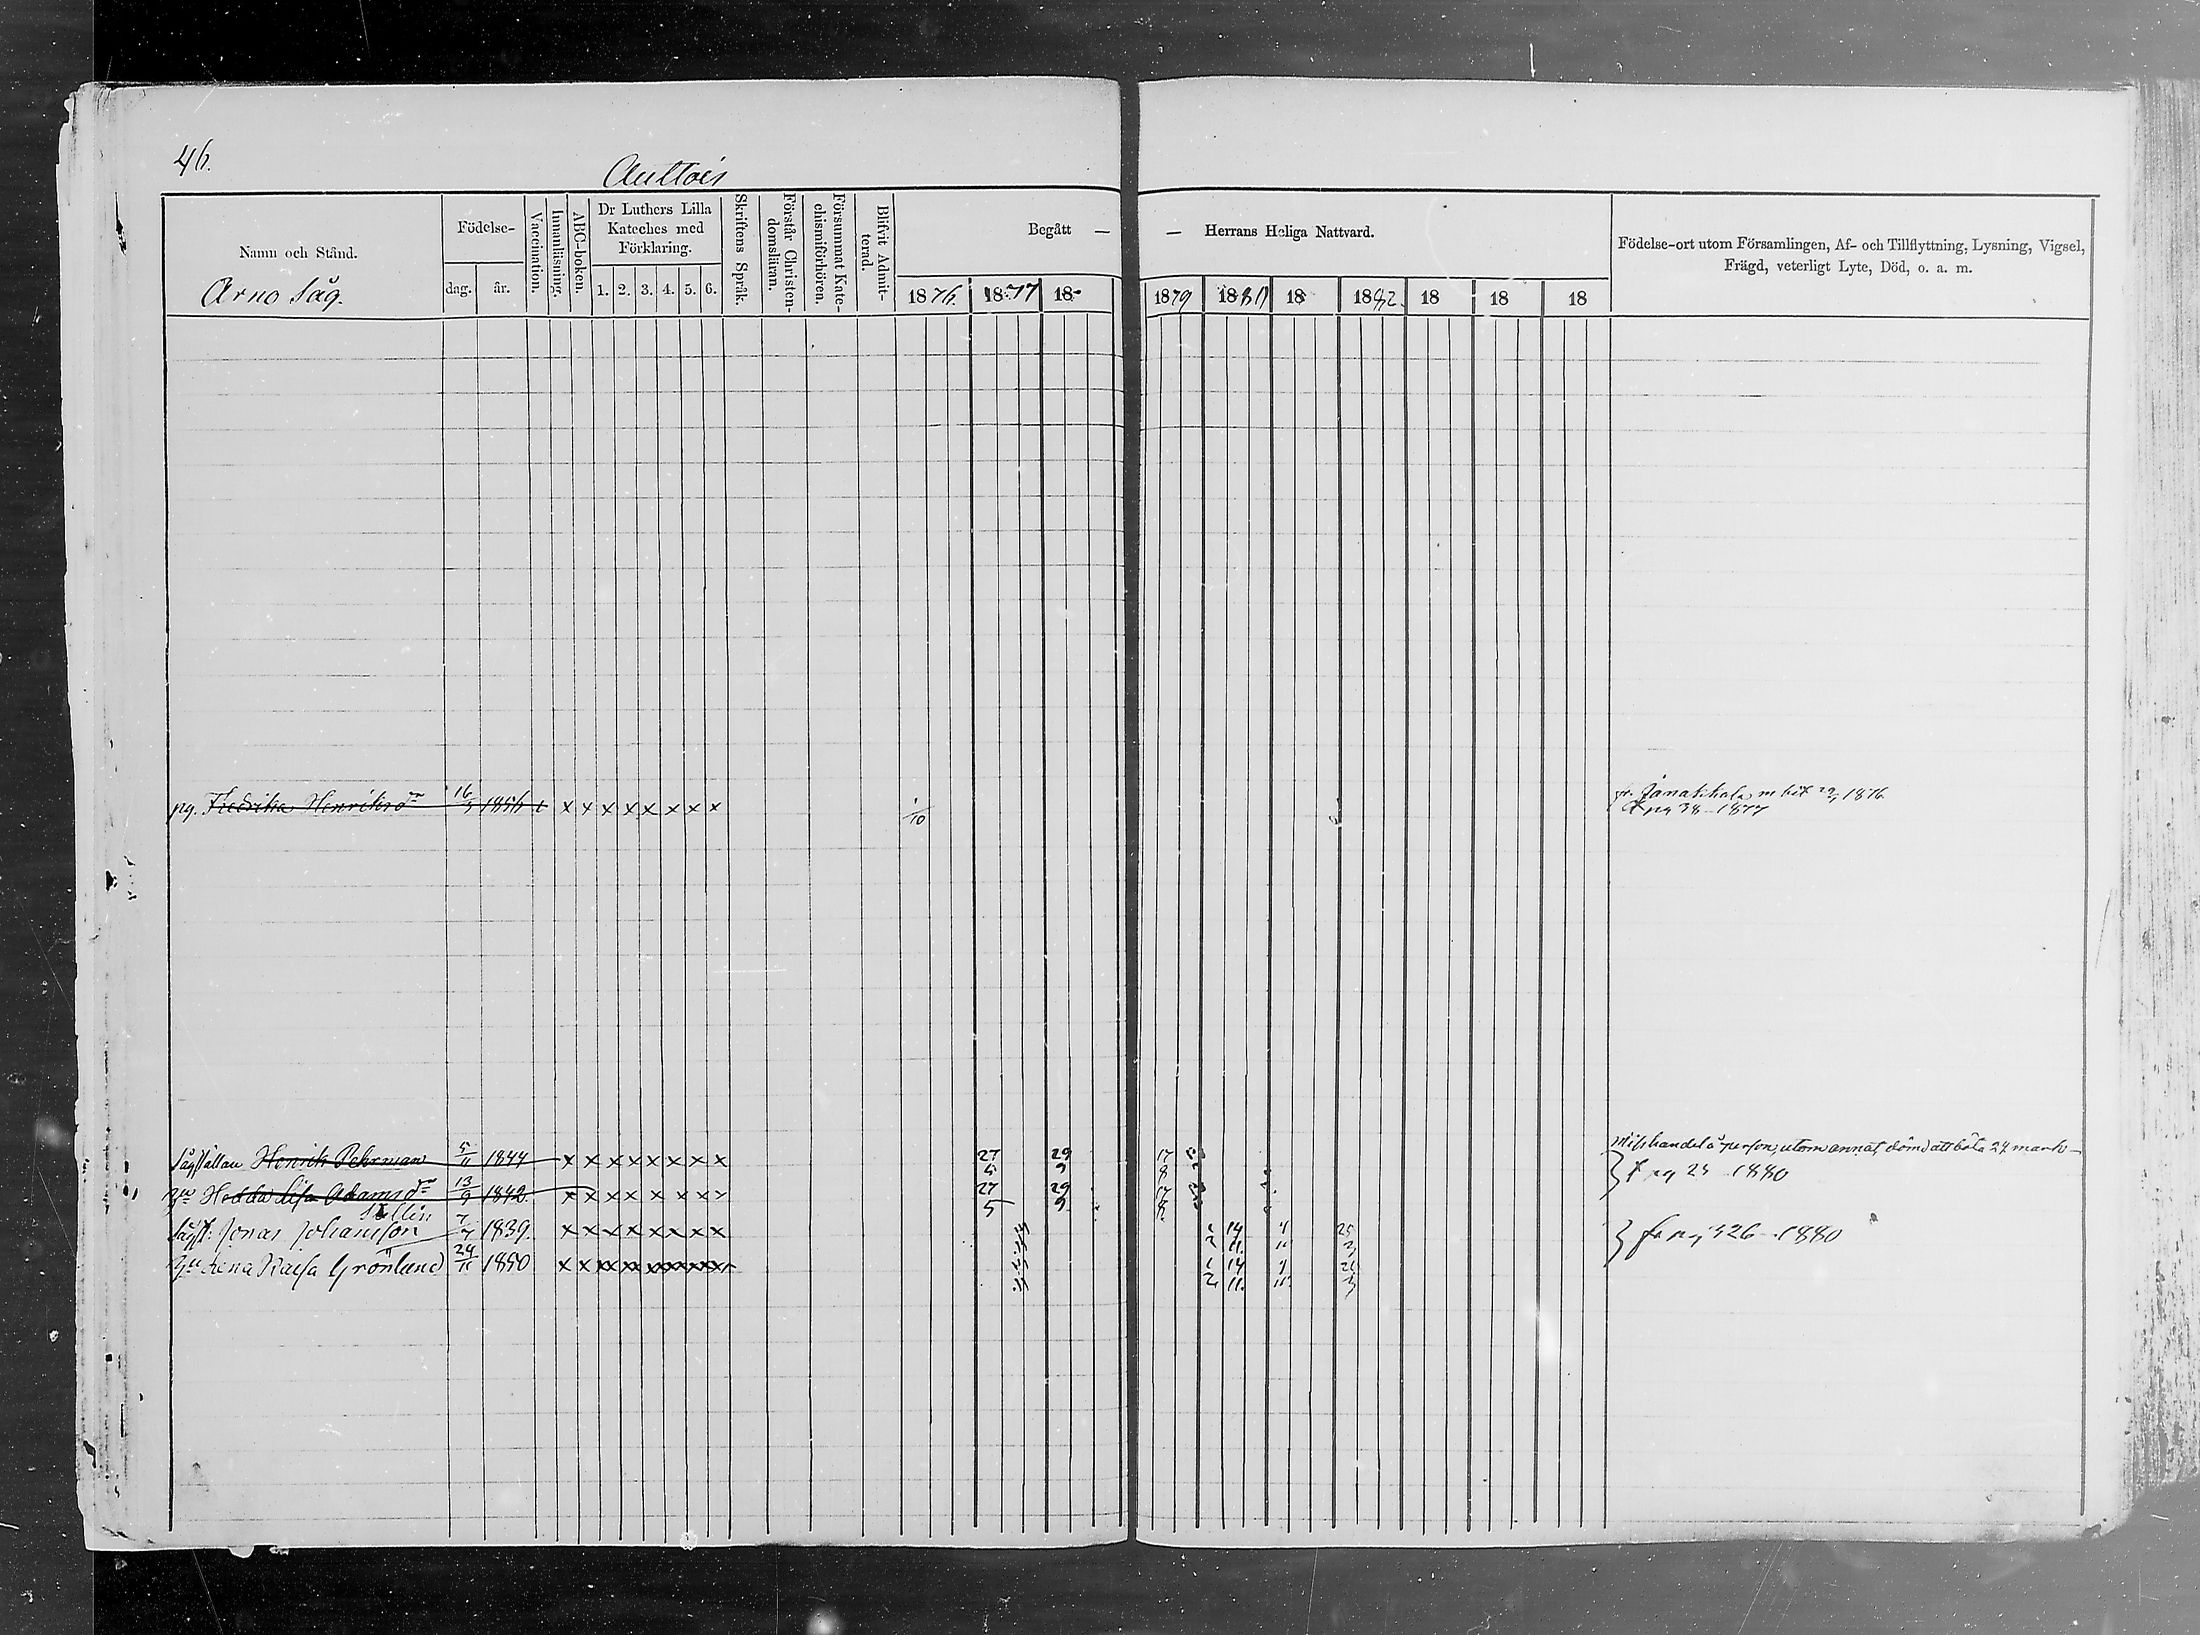 46.
Aultois
Namn och Stånd.
Arno Såg.
Födelse-
dag. år.
Vaccination.
Innanläsning.
ABC-boken.
Dr Luthers Lilla
Kateches med
Förklaring.
1. 2. 3. 4. 5. 6.
Skriftens Språk.
Förstår Christen-
domsläran.
Försummat Kate-
chismiförhören.
Blifvit Admit-
terad.
Begått —
— Herrans Heliga Nattvard.
1876. 1877 18
1879 1880 18 1882. 18 18 18
Födelse-ort utom Församlingen, Af- och Tillflyttning, Lysning, Vigsel,
Frägd, veterligt Lyte, Död, o. a. m.
pg. Fredrika Henriksdr 16/3 1856 x x x x x x x x 1/10 fr. Janakkala m bet 1876
pg 38 - 1877
Henrik Pehrman 5/11 1844 x x x x x x x x 27/5 29/9 17/8 Misshandel å person, utom annat, dömd att böta 24 mark
Hu Hedda Lisa Adamsdr 13/9 1842. x x x x x x x x 27/5 29/9 17/8 pg 25 - 1880
Sågst: Jonas Johansson 1839. x x x x x x x x 14/11 fr pg 326 - 1880
Hu Lena Kaisa Grönlund 24/11 1850 x x x x x x x x 14/11